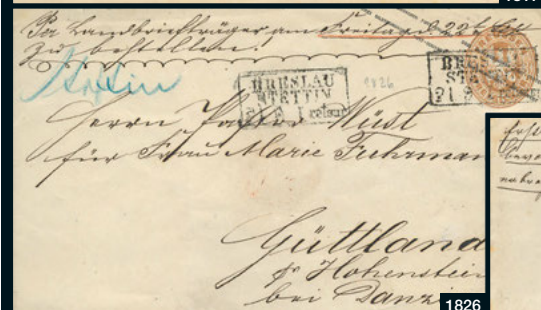 Per Landbriefträger am Freitag d. 22t.
zu bestellen!
Stettin
1826
BRESLAU
STETTIN
21 8 I
BRESLAU
STETTIN
21 8 I
Herrn Pastor Wüst
für Frau Marie Fuhrman
Güttland
pr Hohenstein
bei Danzi
1826